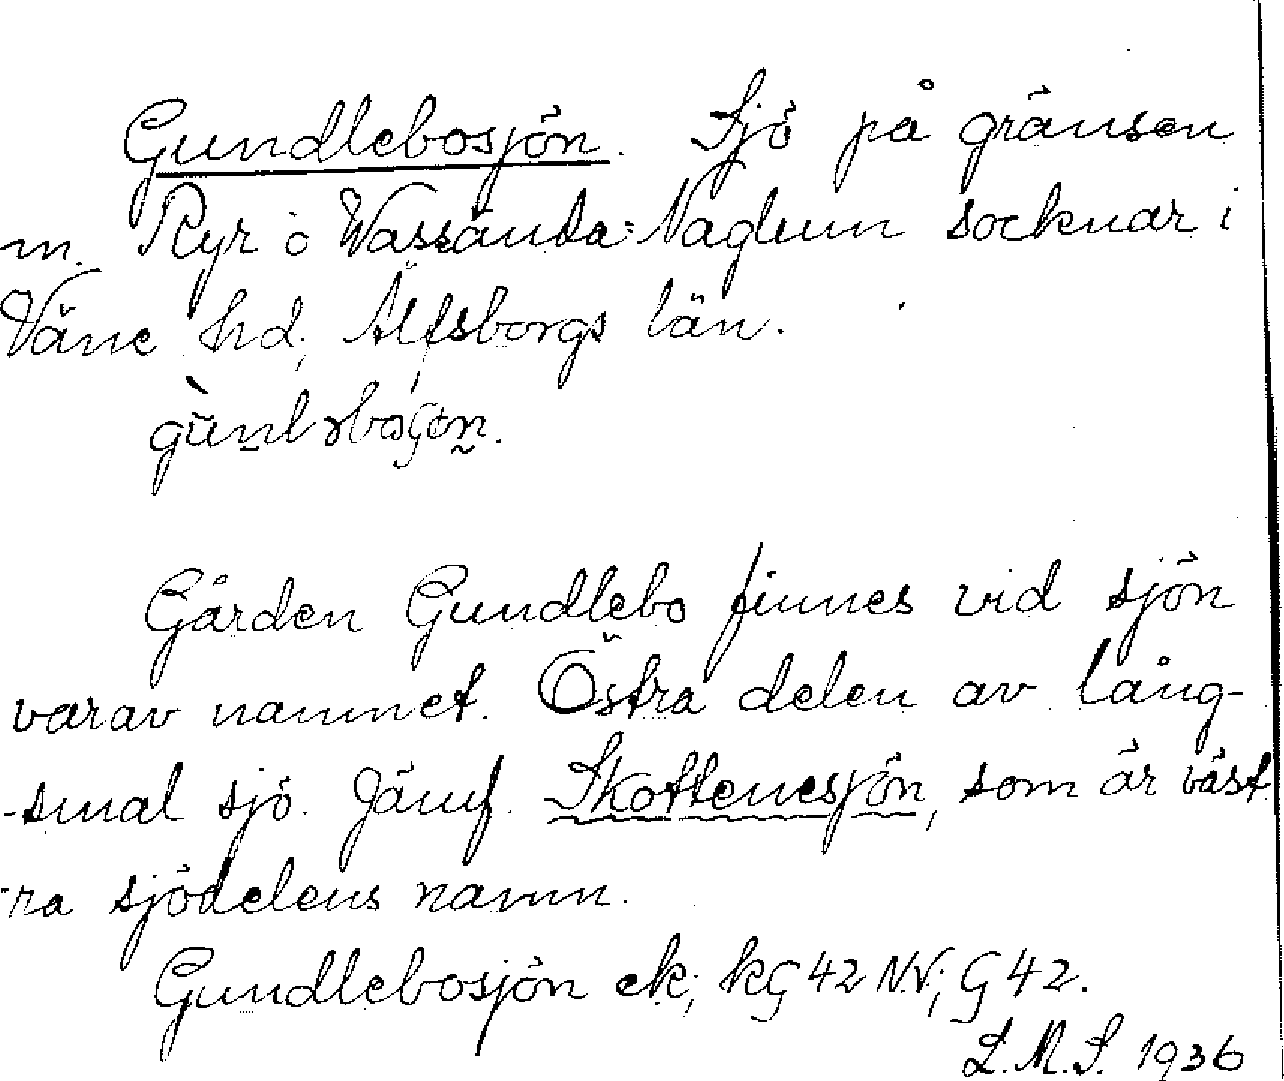 Gundlebosjön. Sjö på gränsen
m. Ryr o Wassända-Naglum socknar i
Väne hd, Älfsborgs län.
Gården Gundlebo finnes vid sjön
varav namnet. Östra delen av lång-
-smal sjö. Jämf. Skottenesjön, som är väst
-ra sjödelens namn.
Gundlebosjön ek; kG 42 NV; G 42.
L.M.S. 1936